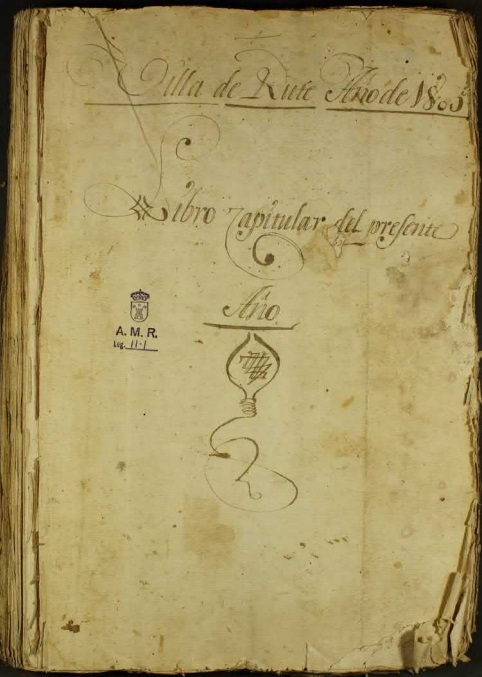 Villa de Rute Año de 1805
Libro Capitular del presente
Año
A. M. R.
Leg. 11-1